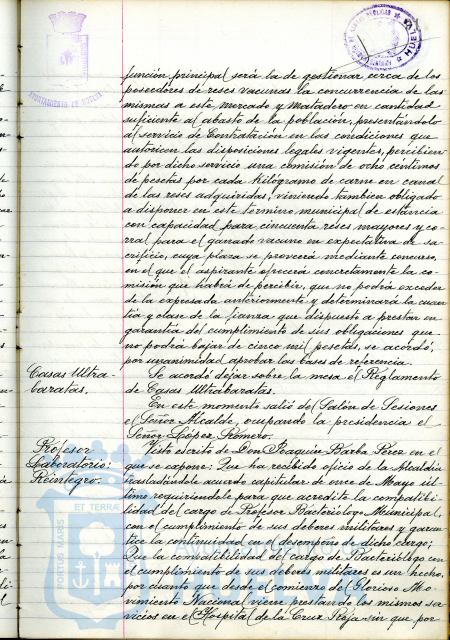 AYUNTAMIENTO DE HUELVA
HUELVA
función principal será la de gestionar cerca de los
poseedores de reses vacunas la concurrencia de las
mismas a este Mercado y Matadero en cantidad
suficiente al abasto de la población, presentándolo
al servicio de Contratación en las condiciones que
autoricen las disposiciones legales vigentes, percibien
do por dicho servicio una comisión de ocho céntimos
de pesetas por cada Kilógramo de carne en canal
de las reses adquiridas, viniendo tambien obligado
a disponer en este término municipal de estancia
con capacidad para cincuenta reses mayores y co-
rral para el ganado vacuno en expectativa de sa-
crificio, cuya plaza se proveerá mediante concurso,
en el que el aspirante ofrecerá concretamente la co-
misión que habrá de percibir, que no podrá exceder
de la expresada anteriormente y determinará la cuan
tía y clase de la fianza que dispuesto a prestar en
garantía del cumplimiento de sus obligaciones que
no podrá bajar de cinco mil pesetas, se acordó,
por unanimidad aprobar las bases de referencia.
Casas Ultra-
baratas.
Se acordó dejar sobre la mesa el Reglamento
de Casas Ultrabaratas.
En este momento salió del Salón de Sesiones
el Señor Alcalde, ocupando la presidencia el
Señor López Romero.
Profesor
Laboratorio:
Reintegro.
Visto escrito de Don Joaquin Barba Pérez en el
que se expone: Que ha recibido oficio de la Alcaldía
trasladándole acuerdo capitular de once de Mayo úl-
timo requiriéndole para que acredite la compatibi-
lidad del cargo de Profesor Bacteriólogo Municipal,
con el cumplimiento de sus deberes militares y garan
tice la continuidad en el desempeño de dicho cargo;
Que la compatibilidad del cargo de Bacteriólogo con
el cumplimiento de sus deberes militares es un hecho,
por cuanto que desde el comienzo del Glorioso Mo-
vimiento Nacional viene prestando los mismos ser-
vicios en el Hospital de la Cruz Roja sin que por
PORTUS MARIS
ET TERRAE